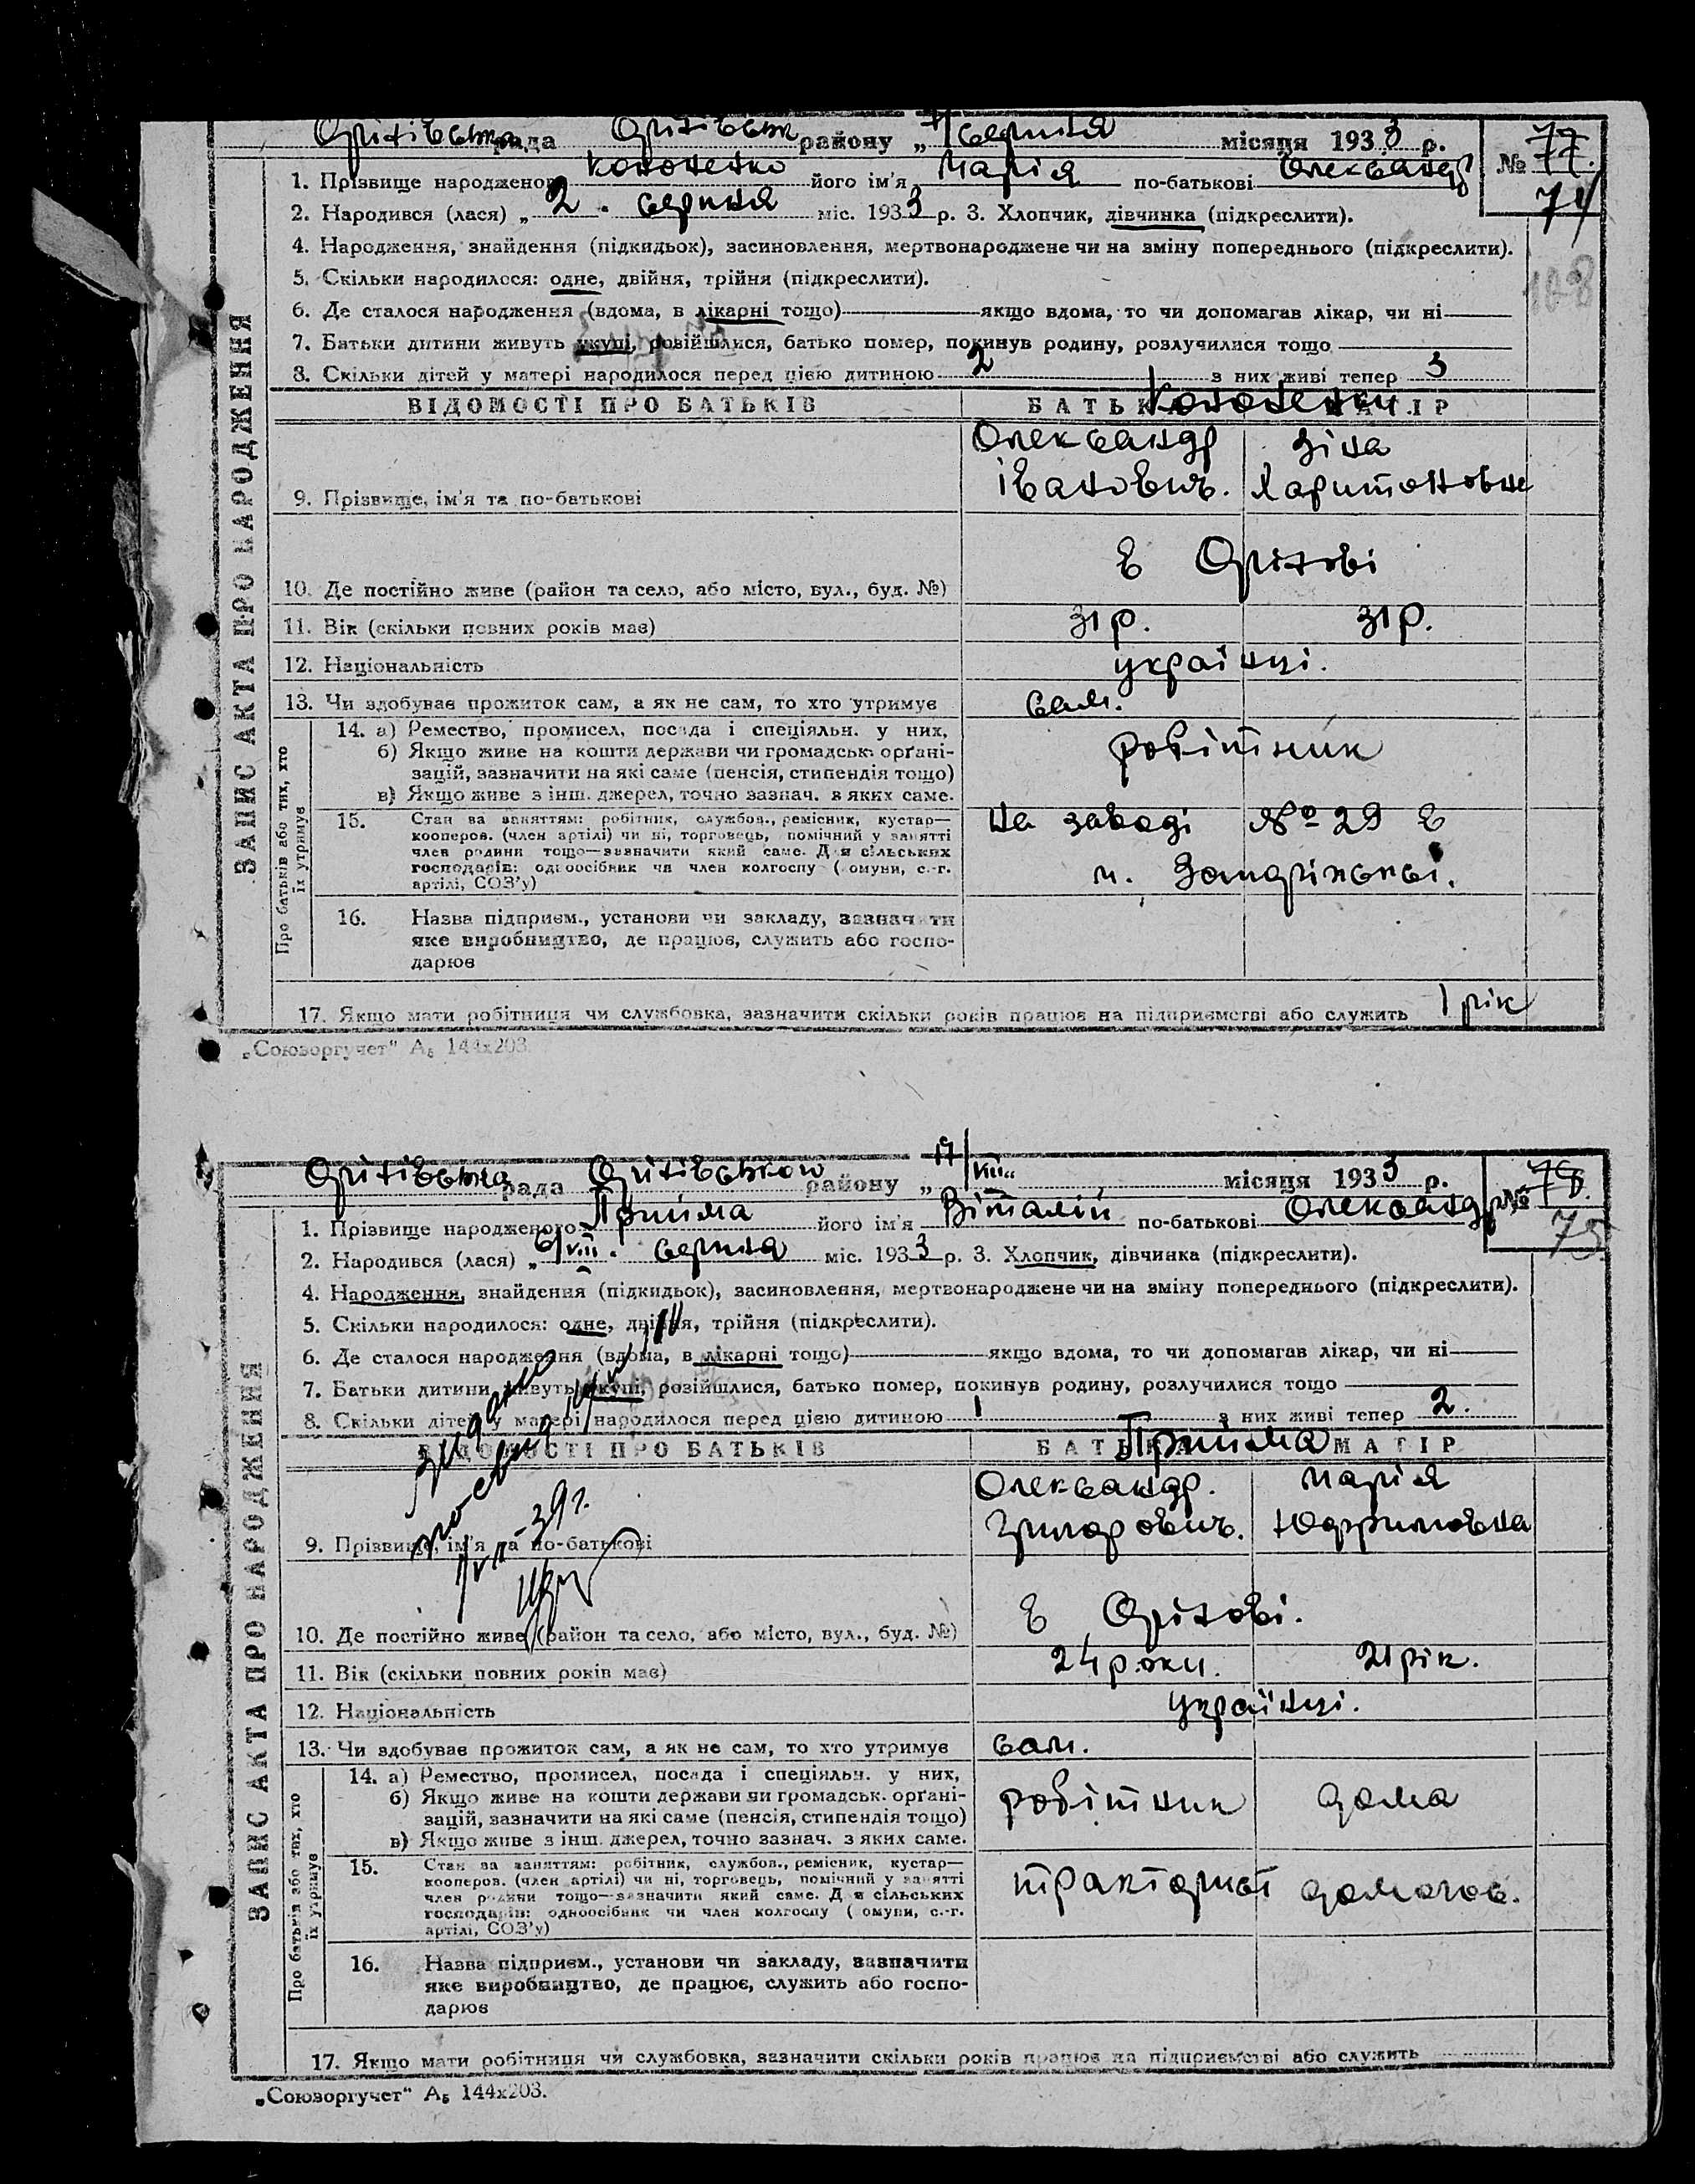 Оріхівська рада Оріхівськ району „7/серпня місяця 1933 р.
№ 77.
74
1. Прізвище народженого Кононенко його ім'я Марія по-батькові Олександр
2. Народився (лася) „2. серпня міс. 1933 р. 3. Хлопчик, дівчинка (підкреслити).
4. Народження, знайдення (підкидьок), засиновлення, мертвонароджене чи на зміну попереднього (підкреслити).
5. Скільки народилося: одне, двійня, трійня (підкреслити).
108
6. Де сталося народження (вдома, в лікарні тощо) якщо вдома, то чи допомагав лікар, чи ні
7. Батьки дитини живуть вкупі, розійшлися, батько помер, покинув родину, розлучилися тощо
8. Скільки дітей у матері народилося перед цією дитиною 2 з них живі тепер 3
ВІДОМОСТІ ПРО БАТЬКІВ БАТЬКО МАТІР
Кононенки.
Олександр Зіна
9. Прізвище, ім'я та по-батькові Івановичъ. Харитоновна
10. Де постійно живе (район та село, або місто, вул., буд. №) в Оріхові
11. Вік (скільки повних років має) 31 р. 31 р.
12. Національність українці.
13. Чи здобуває прожиток сам, а як не сам, то хто утримує сам.
ЗАПИС АКТА ПРО НАРОДЖЕННЯ
Про батьків або тих, хто їх утримує
14. а) Ремество, промисел, посада і спеціяльн. у них, робітник
б) Якщо живе на кошти держави чи громадськ. орґані-
зацій, зазначити на які саме (пенсія, стипендія тощо)
в) Якщо живе з інш. джерел, точно зазнач. з яких саме.
15. Стан за заняттям: робітник, службов., ремісник, кустар— на заводі № 29 в
кооперов. (член артілі) чи ні, торговець, помічний у занятті
член родини тощо—зазначити який саме. Для сільських
господарів: одноосібник чи член колгоспу (комуни, с.-г. м. Запоріжжі.
артілі, СОЗ'у)
16. Назва підприєм., установи чи закладу, зазначити
яке виробництво, де працює, служить або госпо-
дарює
17. Якщо мати робітниця чи службовка, зазначити скільки років працює на підприємстві або служить 1 рік
„Союзоргучет" А₅ 144х203.
Оріхівська рада Оріхівського району „17/VIII„ місяця 1933 р.
№ 78.
75
1. Прізвище народженого Прийма його ім'я Віталій по-батькові Олександр
2. Народився (лася) „6/VIII. серпня міс. 1933 р. 3. Хлопчик, дівчинка (підкреслити).
4. Народження, знайдення (підкидьок), засиновлення, мертвонароджене чи на зміну попереднього (підкреслити).
5. Скільки народилося: одне, двійня, трійня (підкреслити).
6. Де сталося народження (вдома, в лікарні тощо) якщо вдома, то чи допомагав лікар, чи ні
7. Батьки дитини живуть вкупі, розійшлися, батько помер, покинув родину, розлучилися тощо
8. Скільки дітей у матері народилося перед цією дитиною 1 з них живі тепер 2.
ВІДОМОСТІ ПРО БАТЬКІВ БАТЬКО МАТІР
Прийма
Олександр. Марія
9. Прізвище, ім'я та по-батькові Юффимовна
10. Де постійно живе (район та село, або місто, вул., буд. №) в Оріхові.
11. Вік (скільки повних років має) 24 роки. 21 рік.
12. Національність українці.
13. Чи здобуває прожиток сам, а як не сам, то хто утримує сам.
ЗАПИС АКТА ПРО НАРОДЖЕННЯ
Про батьків або тих, хто їх утримує
14. а) Ремество, промисел, посада і спеціяльн. у них, робітник дома
б) Якщо живе на кошти держави чи громадськ. орґані-
зацій, зазначити на які саме (пенсія, стипендія тощо)
в) Якщо живе з інш. джерел, точно зазнач. з яких саме.
15. Стан за заняттям: робітник, службов., ремісник, кустар— тракторист домогос.
кооперов. (член артілі) чи ні, торговець, помічний у занятті
член родини тощо—зазначити який саме. Для сільських
господарів: одноосібник чи член колгоспу (комуни, с.-г.
артілі, СОЗ'у)
16. Назва підприєм., установи чи закладу, зазначити
яке виробництво, де працює, служить або госпо-
дарює
17. Якщо мати робітниця чи службовка, зазначити скільки років працює на підприємстві або служить
„Союзоргучет" А₅ 144х203.